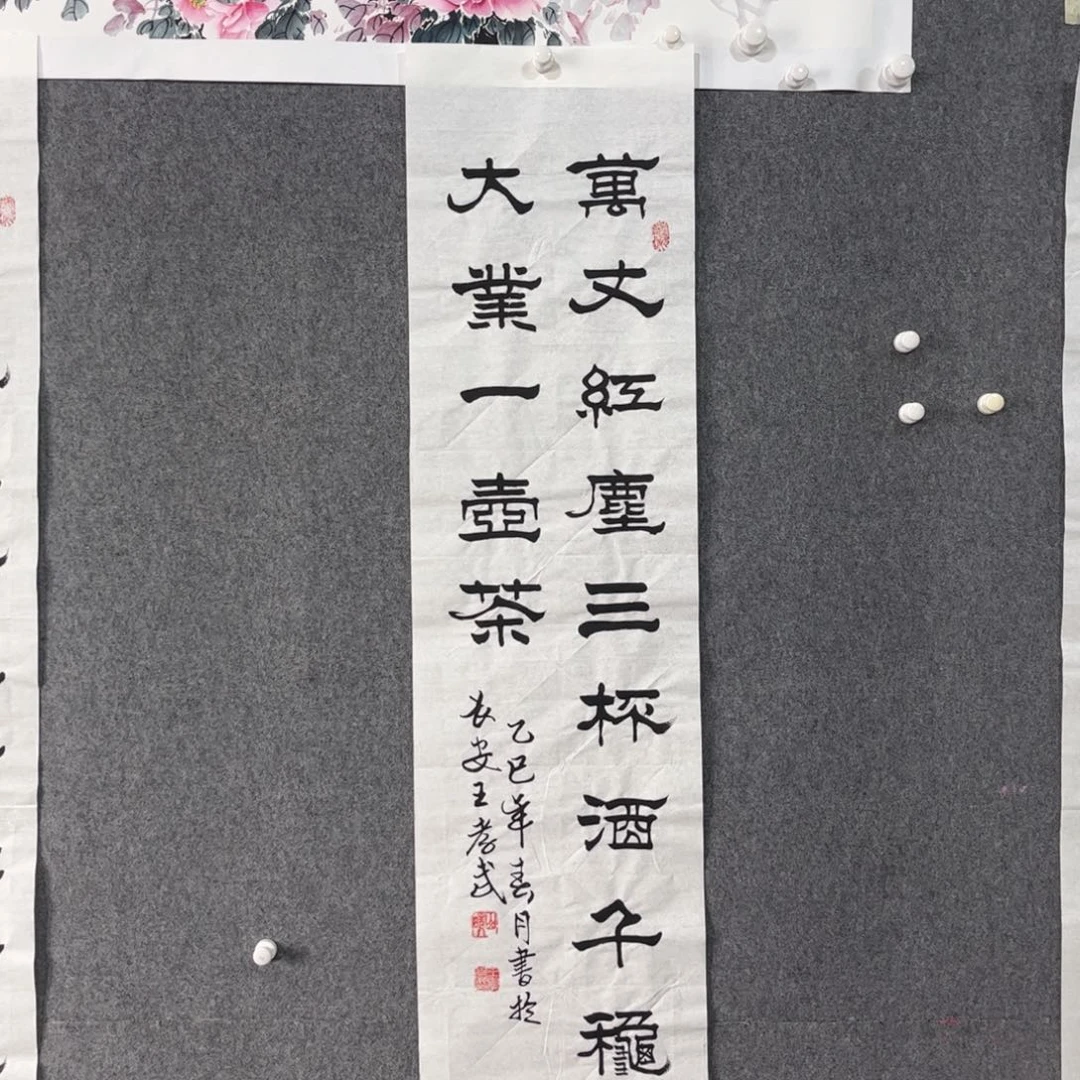 萬丈紅塵三杯酒千龝
大業一壺茶
乙巳年春月書於
長安王孝武